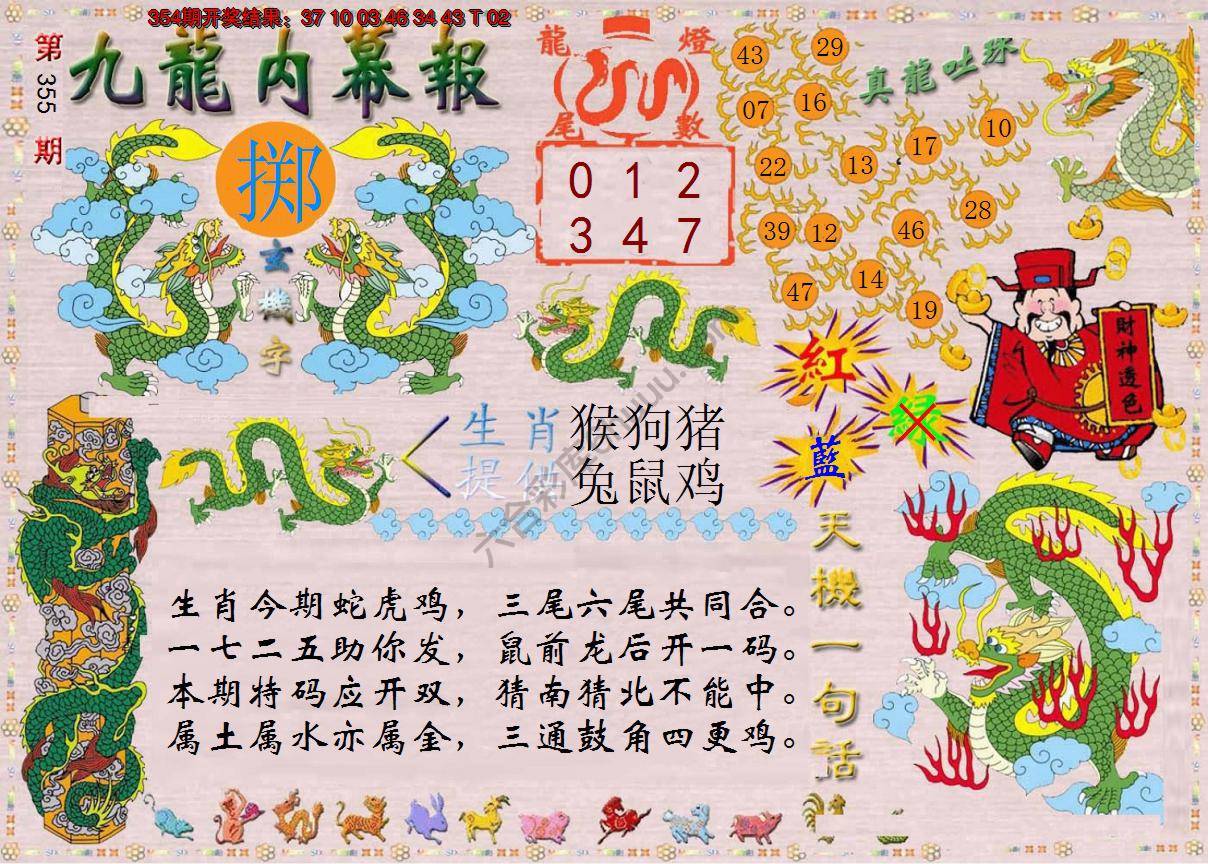 354期开奖结果：37 10 03 46 34 43 T 02
第
355
期
九龍内幕報
龍 燈
尾 數
0 1 2
3 4 7
真龍吐珠
43
29
07
16
17
10
22
13
39
12
46
28
47
14
19
掷
玄
機
字
紅
綠
藍
財神透色
生肖 猴狗猪
提供 兔鼠鸡
天機一句話
生肖今期蛇虎鸡，三尾六尾共同合。
一七二五助你发，鼠前龙后开一码。
本期特码应开双，猜南猜北不能中。
属土属水亦属金，三通鼓角四更鸡。